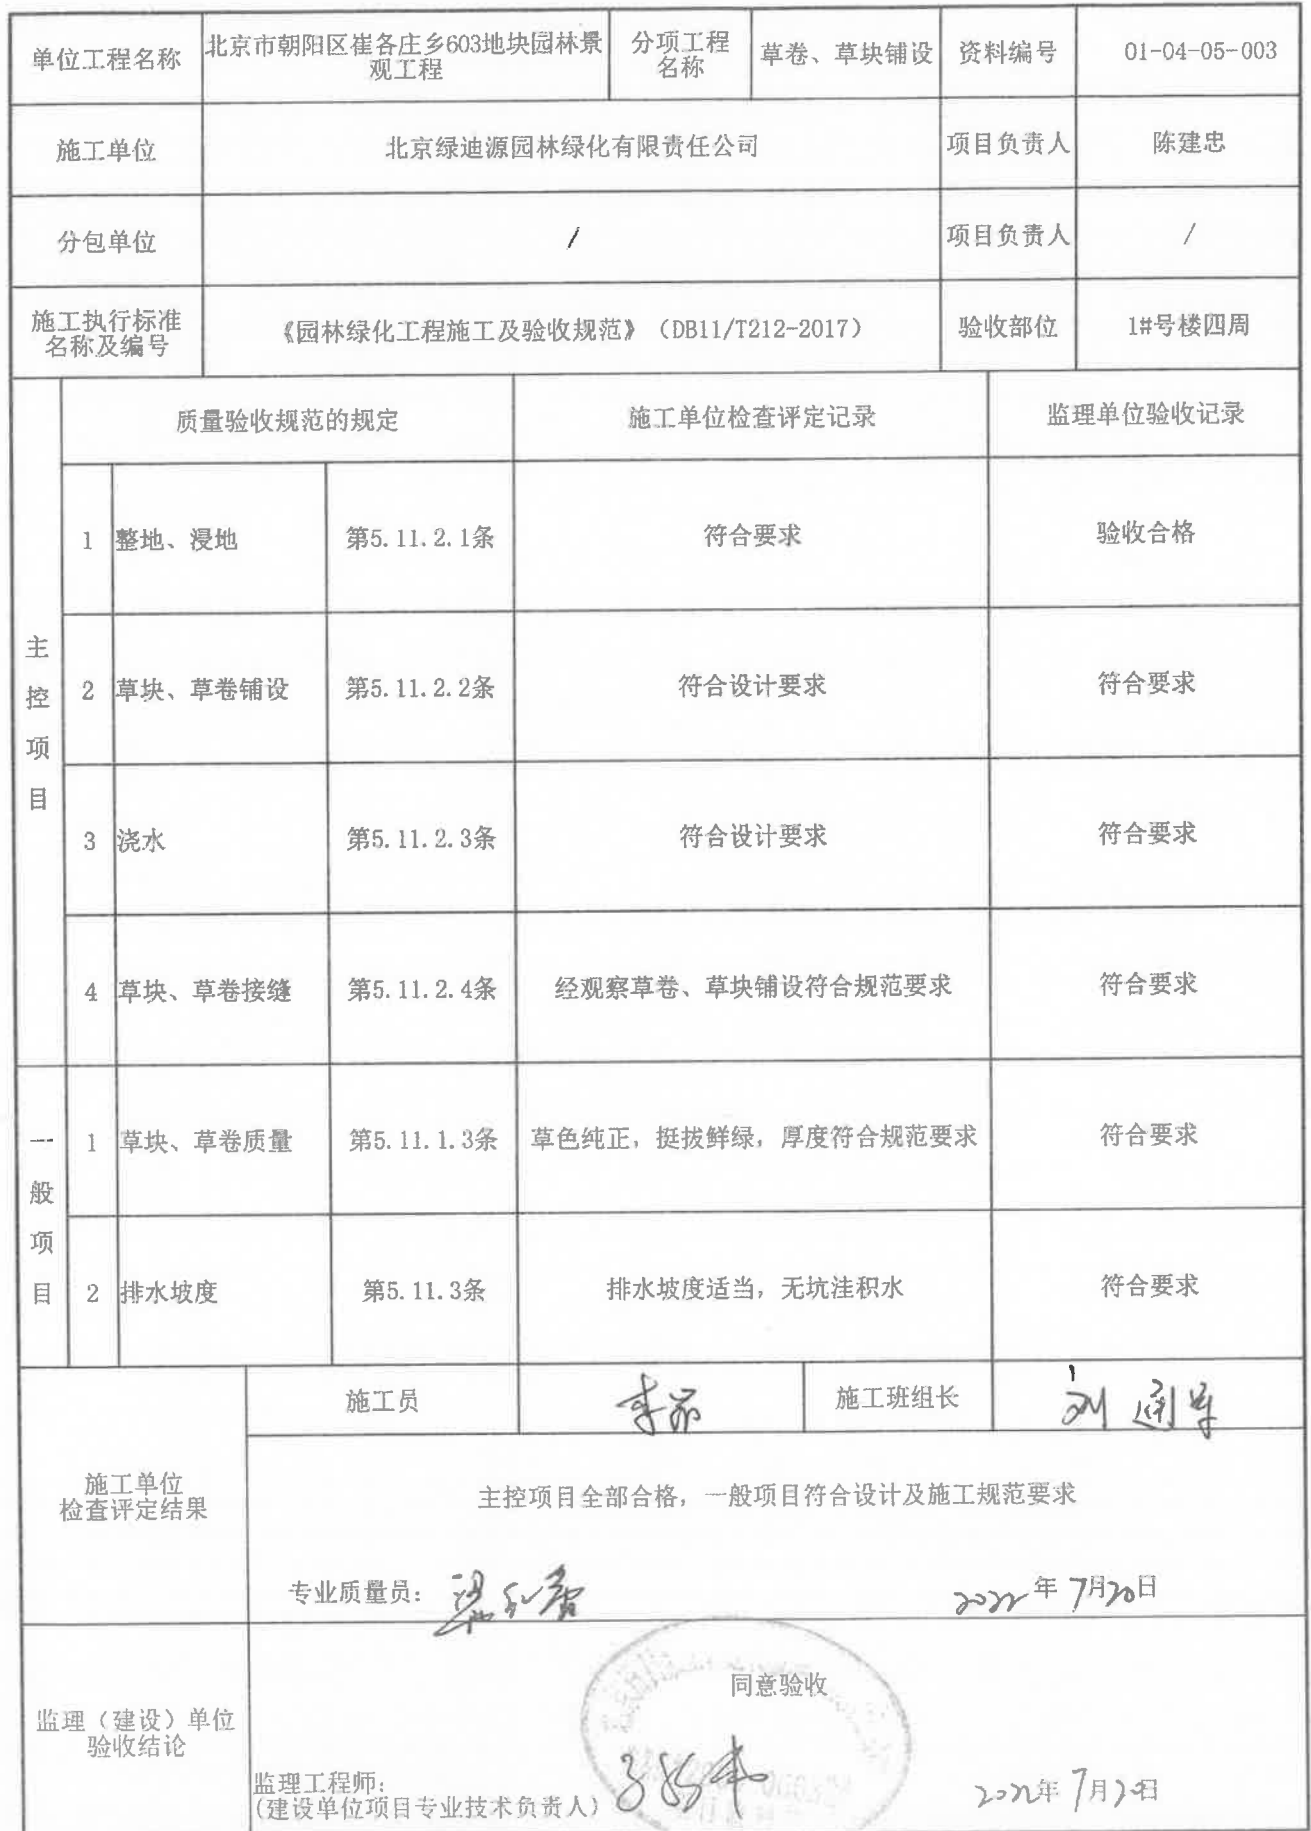 单位工程名称 北京市朝阳区崔各庄乡603地块园林景 分项工程 草卷、草块铺设 资料编号 01-04-05-003
观工程 名称
施工单位 北京绿迪源园林绿化有限责任公司 项目负责人 陈建忠
分包单位 / 项目负责人 /
施工执行标准 《园林绿化工程施工及验收规范》（DB11/T212-2017） 验收部位 1#号楼四周
名称及编号
质量验收规范的规定 施工单位检查评定记录 监理单位验收记录
主控项目
1 整地、浸地 第5.11.2.1条 符合要求 验收合格
2 草块、草卷铺设 第5.11.2.2条 符合设计要求 符合要求
3 浇水 第5.11.2.3条 符合设计要求 符合要求
4 草块、草卷接缝 第5.11.2.4条 经观察草卷、草块铺设符合规范要求 符合要求
一般项目
1 草块、草卷质量 第5.11.1.3条 草色纯正，挺拔鲜绿，厚度符合规范要求 符合要求
2 排水坡度 第5.11.3条 排水坡度适当，无坑洼积水 符合要求
施工员 施工班组长
施工单位
检查评定结果
主控项目全部合格，一般项目符合设计及施工规范要求
专业质量员： 2022年7月20日
监理（建设）单位
验收结论
同意验收
监理工程师：
（建设单位项目专业技术负责人） 2022年7月20日